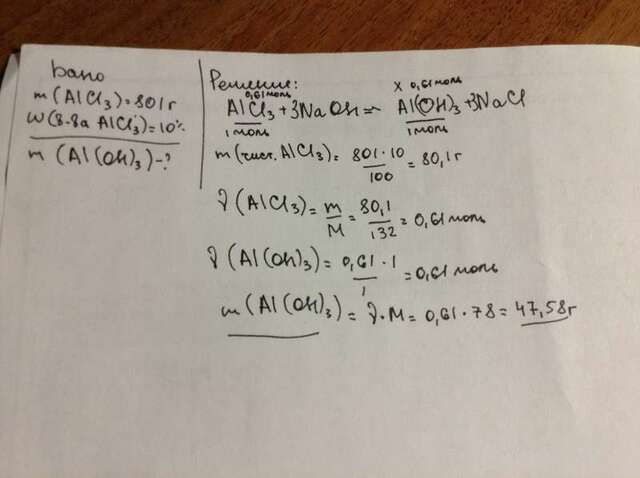 Дано
m(AlCl₃)=801г
W(в-ва AlCl₃)=10%
m(Al(OH)₃)-?
Решение:
0,61моль x 0,61моль
AlCl₃+3NaOH= Al(OH)₃+3NaCl
1моль 1моль
m(чист. AlCl₃)= 801·10/100 = 80,1г
ν(AlCl₃)= m/M = 80,1/132 = 0,61моль
ν(Al(OH)₃)= 0,61·1/1 = 0,61моль
m(Al(OH)₃)= ν·M= 0,61·78= 47,58г